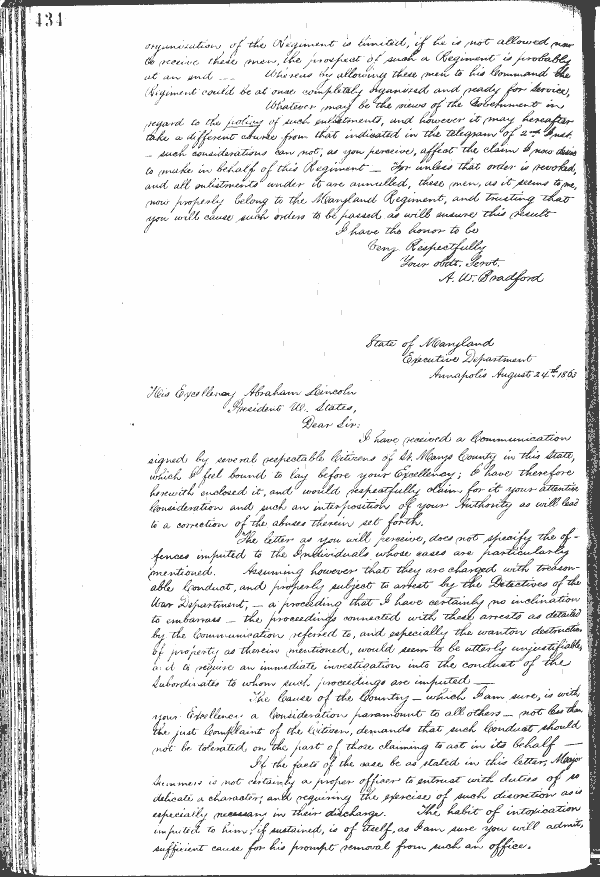 434
organization of the Regiment is limited, if he is not allowed now
to receive these men, the prospect of such a Regiment is probably
at an end — Whereas by allowing these men to his Command the
Regiment could be at once completely organized and ready for Service,
Whatever may be the views of the Government in
regard to the policy of such enlistments, and however it may hereafter
take a different course from that indicated in the telegram of 2nd Inst.
— such considerations can not, as you perceive, affect the claim I now desire
to make in behalf of this Regiment — For unless that order is revoked,
and all enlistments under it are annulled, these men, as it seems to me,
now properly belong to the Maryland Regiment, and trusting that
you will cause such orders to be passed as will ensure this result
I have the honor to be
Very Respectfully
Your obdt. Servt.
A. W. Bradford
State of Maryland
Executive Department
Annapolis August 24th 1863
His Excellency Abraham Lincoln
President U. States,
Dear Sir:
I have received a Communication
signed by several respectable Citizens of St. Marys County in this State,
which I feel bound to lay before your Excellency; I have therefore
herewith enclosed it, and would respectfully claim for it your attentive
Consideration and such an interposition of your Authority as will lead
to a correction of the abuses therein set forth.
The letter as you will perceive, does not specify the of-
fences imputed to the Individuals whose cases are particularly
mentioned. Assuming however that they are charged with treason-
able Conduct, and properly subject to arrest by the Detectives of the
War Department, — a proceeding that I have certainly no inclination
to embarrass — the proceedings connected with these arrests as detailed
by the Communication referred to, and especially the wanton destruction
of property as therein mentioned, would seem to be utterly unjustifiable,
and to require an immediate investigation into the conduct of the
Subordinates to whom such proceedings are imputed —
The Cause of the Country — which I am sure, is with
your Excellency a Consideration paramount to all others — not less than
the just Complaint of the Citizen, demands that such Conduct should
not be tolerated, on the part of those claiming to act in its behalf —
If the facts of the case be as stated in this letter, Major
is not certainly a proper officer to entrust with duties of so
delicate a character, and requiring the exercise of such discretion as is
especially necessary in their discharge. The habit of intoxication
imputed to him, if sustained, is of itself, as I am sure you will admit,
sufficient cause for his prompt removal from such an office.